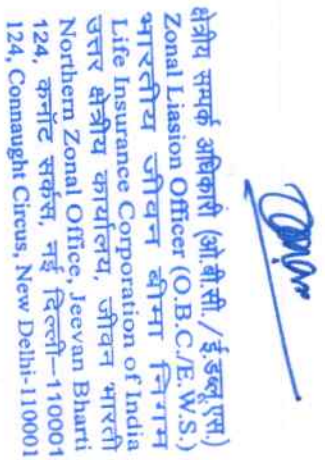 क्षेत्रीय सम्पर्क अधिकारी (ओ.बी.सी./ई.डब्लू.एस)
Zonal Liasion Officer (O.B.C./E.W.S.)
भारतीय जीवन बीमा निगम
Life Insurance Corporation of India
उत्तर क्षेत्रीय कार्यालय, जीवन भारती
Northern Zonal Office, Jeevan Bharti
124, कनॉट सर्कस, नई दिल्ली-110001
124, Connaught Circus, New Delhi-110001